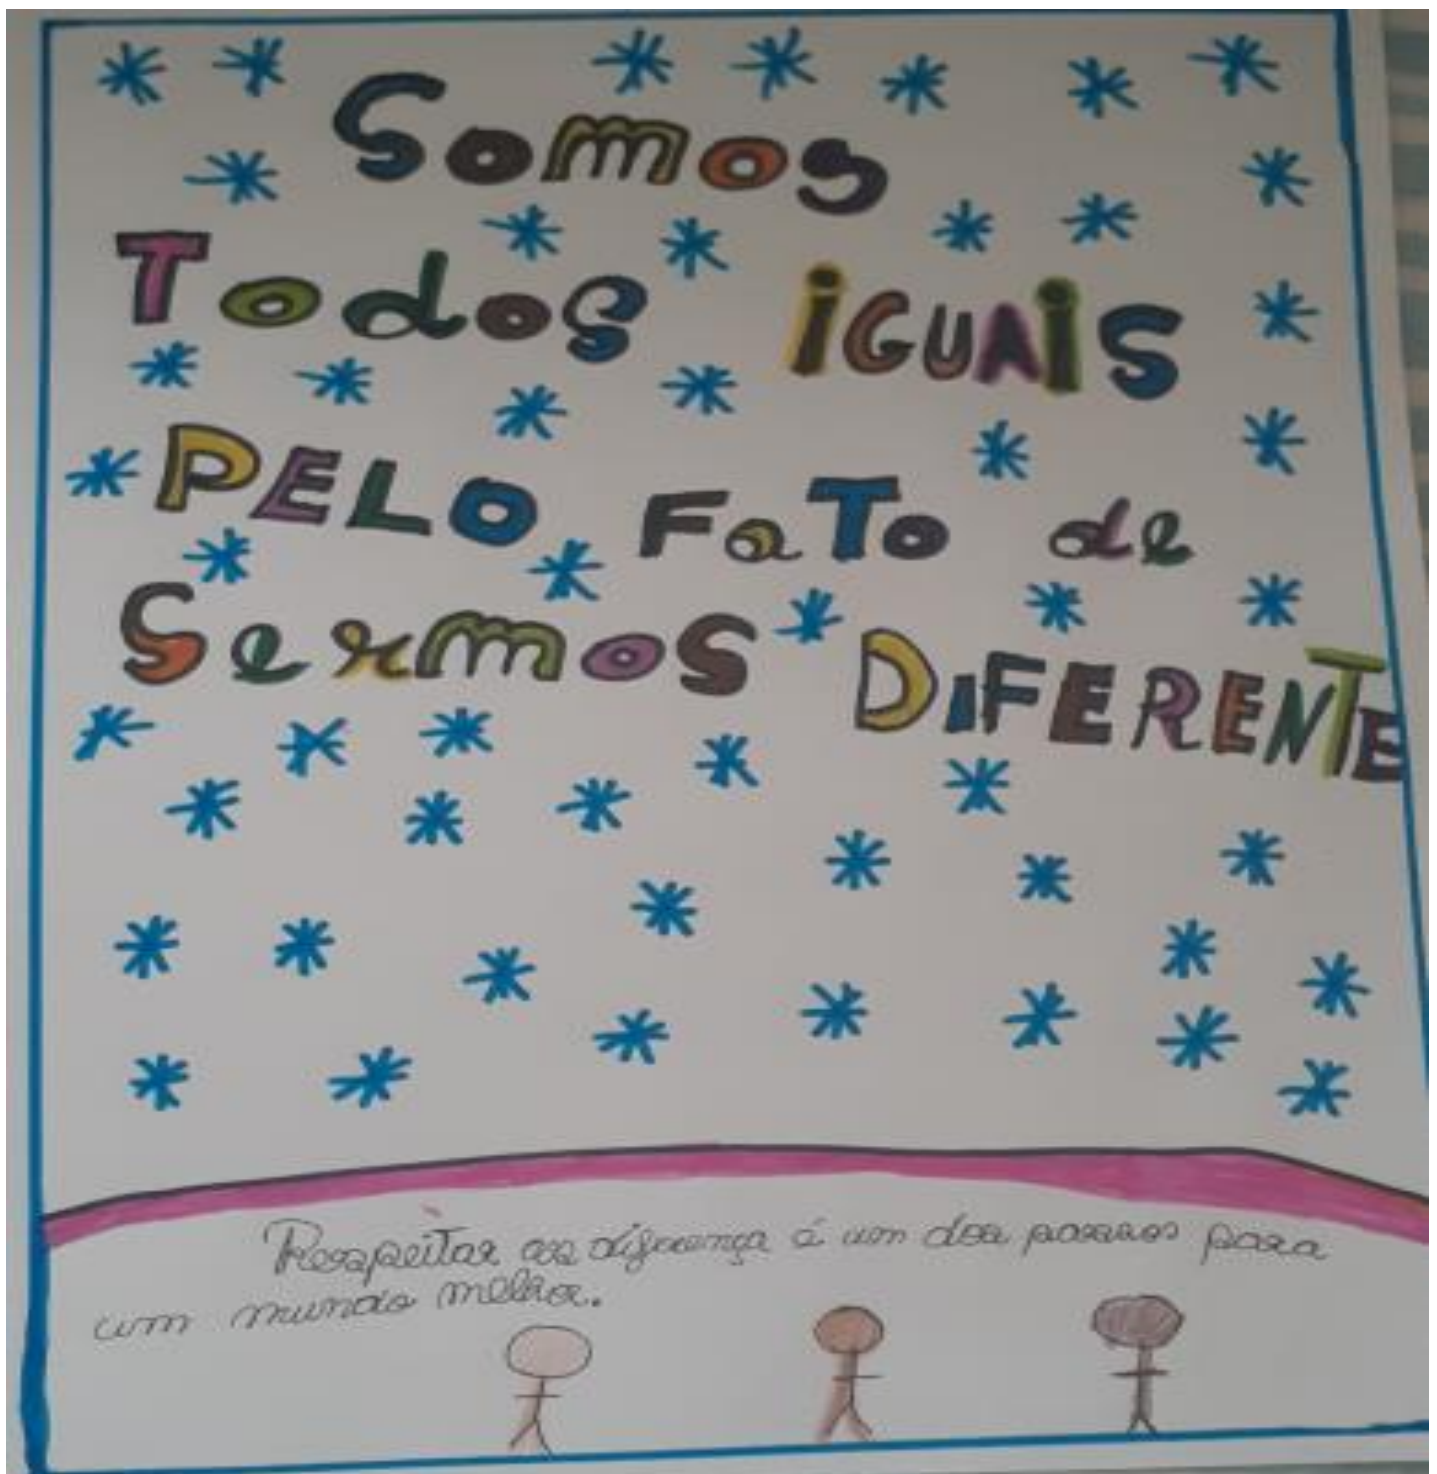 Somos
Todos iGUAiS
PELO FaTo de
Sermos DiFERENTE
Respeitar as diferença é um dos passos para
um mundo melhor.